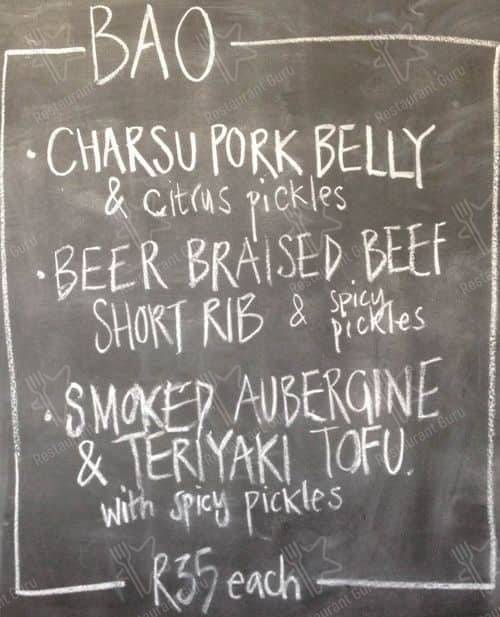 BAO
• CHARSU PORK BELLY
& citrus pickles
• BEER BRAISED BEEF
SHORT RIB & spicy
pickles
• SMOKED AUBERGINE
& TERIYAKI TOFU.
with spicy pickles
R35 each
Restaurant Guru